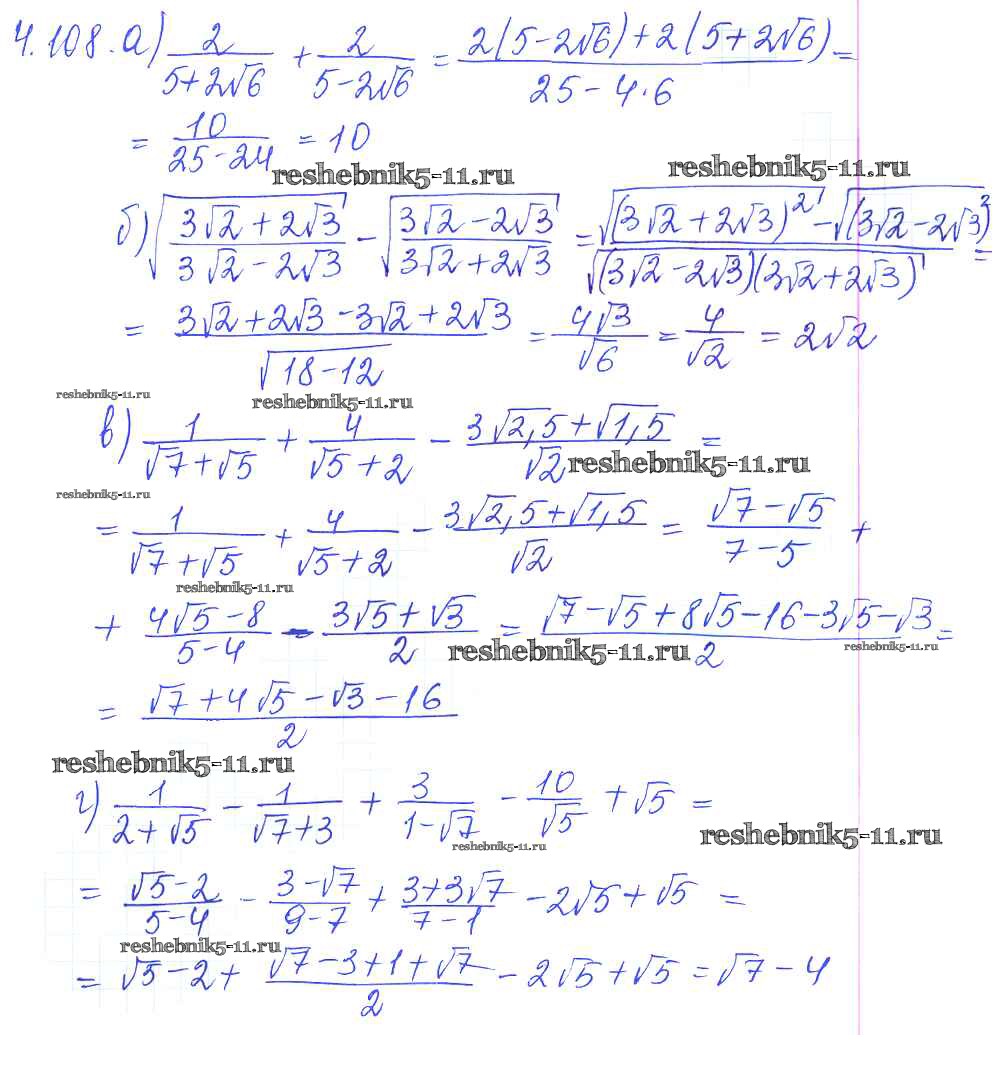 4.108.а) 2/(5+2√6) + 2/(5-2√6) = (2(5-2√6)+2(5+2√6))/(25-4·6) =
= 10/(25-24) = 10
reshebnik5-11.ru
reshebnik5-11.ru
б) √((3√2+2√3)/(3√2-2√3)) - √((3√2-2√3)/(3√2+2√3)) = (√(3√2+2√3)² - √(3√2-2√3)²)/√((3√2-2√3)(3√2+2√3)) =
= (3√2+2√3-3√2+2√3)/√(18-12) = 4√3/√6 = 4/√2 = 2√2
reshebnik5-11.ru
reshebnik5-11.ru
в) 1/(√7+√5) + 4/(√5+2) - (3√2,5+√1,5)/√2 =
reshebnik5-11.ru
reshebnik5-11.ru
= 1/(√7+√5) + 4/(√5+2) - (3√2,5+√1,5)/√2 = (√7-√5)/(7-5) +
reshebnik5-11.ru
+ (4√5-8)/(5-4) - (3√5+√3)/2 = (√7-√5+8√5-16-3√5-√3)/2 =
reshebnik5-11.ru
reshebnik5-11.ru
= (√7+4√5-√3-16)/2
reshebnik5-11.ru
г) 1/(2+√5) - 1/(√7+3) + 3/(1-√7) - 10/√5 + √5 =
reshebnik5-11.ru
reshebnik5-11.ru
= (√5-2)/(5-4) - (3-√7)/(9-7) + (3+3√7)/(7-1) - 2√5 + √5 =
reshebnik5-11.ru
= √5-2+ (√7-3+1+√7)/2 - 2√5+√5 = √7-4